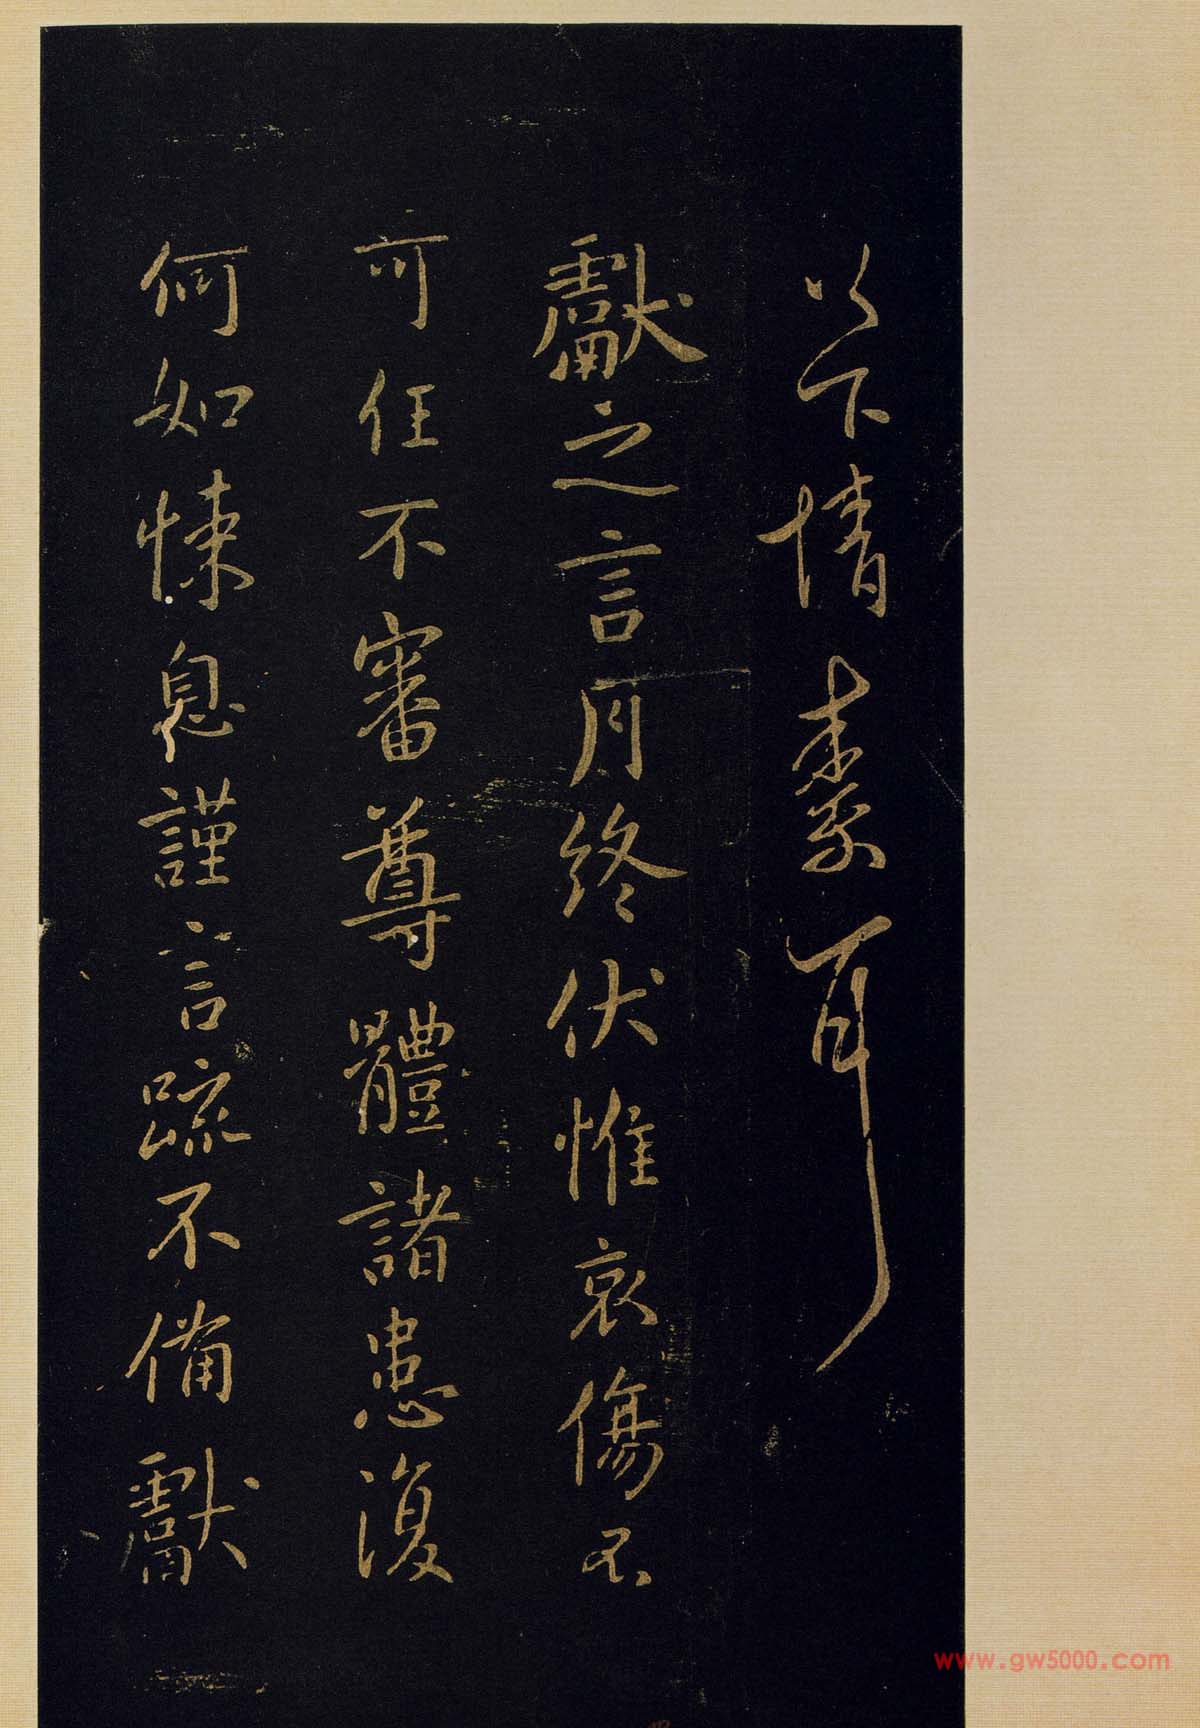 以下情素耳
獻之言月終伏惟哀傷不
可任不審尊體諸患復
何如悚息謹言疏不備獻
www.gw5000.com